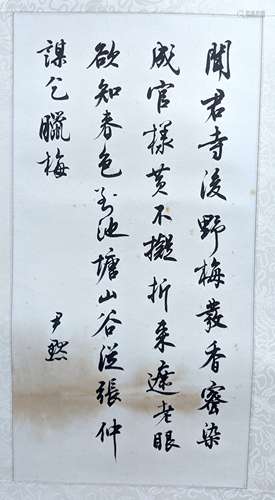 聞君寺後野梅發香蜜染
成宮樣黃不擬折來遮老眼
欲知春色到池塘山谷從張仲
謀乞臘梅
尹默